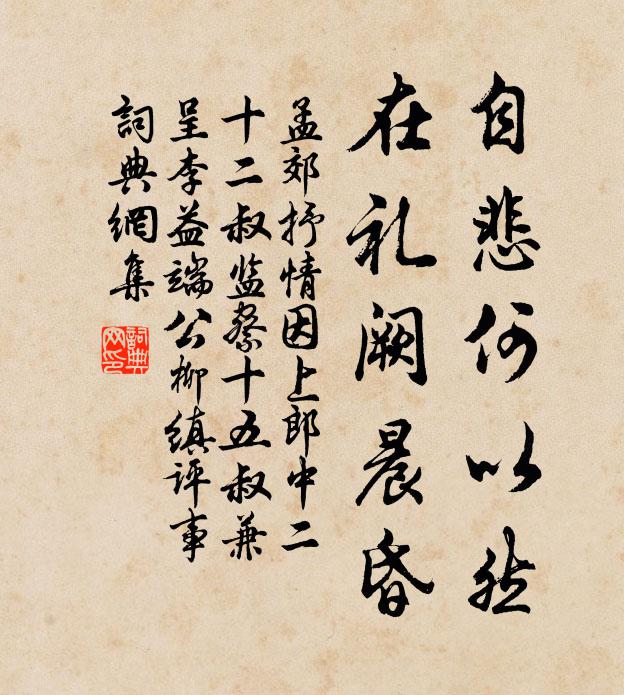 自悲何以然
在礼阙晨昏
孟郊抒情因上郎中二
十二叔监察十五叔兼
呈李益端公柳缜评事
詞典網集
詞典网印